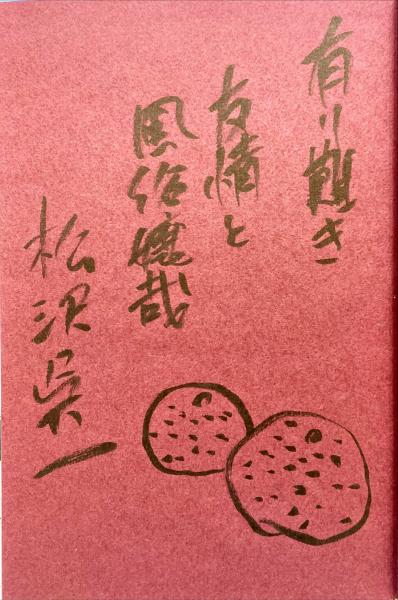 有り難き
友情と
風俗嬢哉
松沢呉一